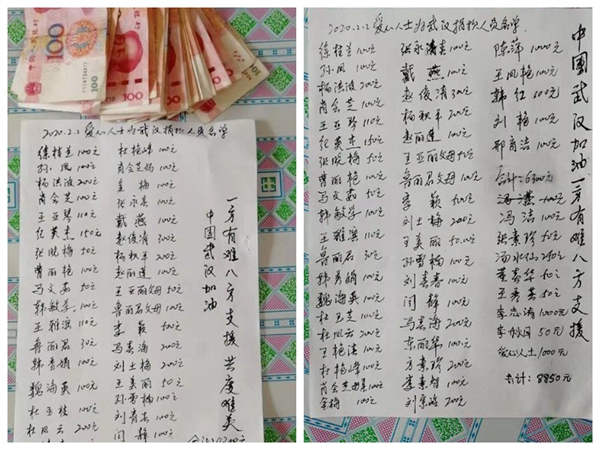 100
2020.2.2 爱心人士为武汉捐款人员名学
徐桂兰 100元 杜艳峰 100元
孙凤 100元 肖会芝妈 100元
杨洪波 200元 姜梅 100元
肖会芝 100元 张永春 100元
王亚琴 110元 戴燕 100元
纪英杰 150元 赵俊清 300元
张晓梅 50元 杨秋丰 200元
曹丽艳 100元 赵丽莲 100元
马文茹 50元 王亚丽父母 100元
韩敏 100元 鲁丽君父母 100元
王雅滨 110元 李颖 50元
鲁丽君 30元 马春海 200元
韩秀娟 100元 刘士梅 200元
魏海英 100元 王美丽 50元
杜玉枝 100元 孙雪梅 100元
杜凤云 200元 刘春 100元
闫静 100元
一方有难八方支援 共度难关
中国武汉加油
2020.2.2 爱心人士为武汉捐款人员名学
徐桂兰 100元 张永春 100元 陈萍 1000元
孙凤 100元 戴燕 100元 王凤艳 100元
杨洪波 200元 赵俊清 300元 韩红 100元
肖会芝 100元 杨秋丰 200元 刘杨 100元
王亚琴 110元 赵丽莲 100元 邢商洁 100元
纪英杰 150元 王亚丽父母 合计:
张晓梅 50元 鲁丽君父母
曹丽艳 100元 李颖 50元 冯洁 100元
马文茹 50元 刘士梅 200元 张素珍 50元
韩敏 100元 王美丽 50元
王雅滨 110元 孙雪梅 100元
鲁丽君 30元 刘春 100元 王秀英 50元
韩秀娟 100元 闫静 100元 1000元
魏海英 100元 马春海 200元 50元
杜玉芝 100元 东丽华 100元 爱心人士 1000元
杜凤云 200元 方素珍 200元
王艳清 100元 100元 共计:8850元
杜艳峰 100元 刘 200元
肖会芝妈 100元
姜梅 100元
中国武汉加油 一方有难八方支援